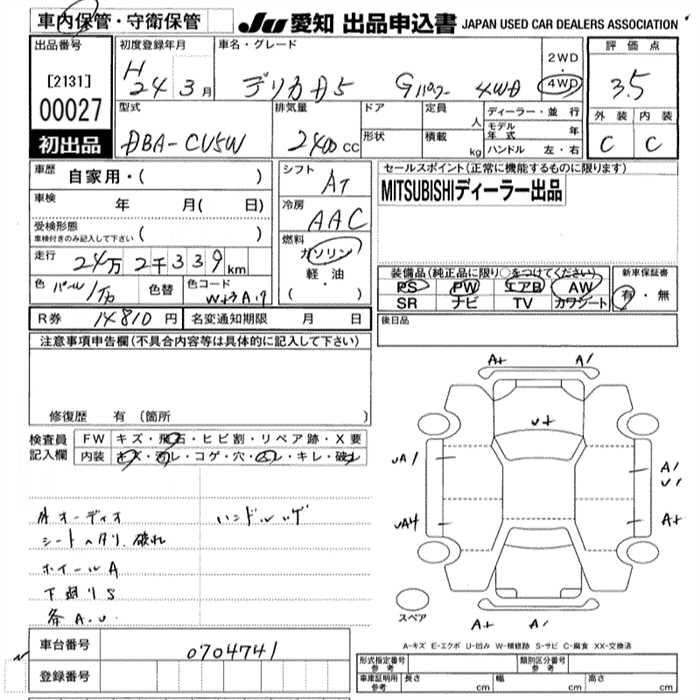 車内保管・守衛保管
JU 愛知 出品申込書 JAPAN USED CAR DEALERS ASSOCIATION
出品番号
[2131]
00027
初出品
初度登録年月
H 24 3月
車名・グレード
デリカD5 Gパワー 4WD
2WD
・
4WD
評価点
3.5
外装 内装
C C
型式
DBA-CV5W
排気量
2400cc
ドア
形状
定員 人
積載 kg
ディーラー・並行
モデル年式 年
ハンドル 左・右
車歴 自家用・( )
車検 年 月( 日)
受検形態
車検付きのみ記入して下さい ( )
走行 24万2千339km
色 パール/白 色替 色コード W43 A.17
シフト AT
冷房 AAC
燃料
ガソリン
軽・油
( ・ )
セールスポイント(正常に機能するものに限ります)
MITSUBISHIディーラー出品
装備品(純正品に限り○をつけてください)
PS PW エアB AW
SR ナビ TV カワシート
新車保証書
有・無
R券 14810円 名変通知期限 月 日
後日品
注意事項申告欄(不具合内容等は具体的に記入して下さい)
修復歴 有 (箇所 )
検査員記入欄
FW キズ・飛石・ヒビ割・リペア跡・X要
内装 キズ・汚レ・コゲ・穴・凹レ・キレ・破れ
外オーディオ ハンドルハゲ
シートヘタリ、破れ
ホイールA
下廻りS
各A.U.
A+ A1
U+
UA1
A1
U1
UA4
A+
スペア
A+ A1
A-キズ E-エクボ U-凹み W-補修跡 S-サビ C-腐食 XX-交換済
車台番号 0704741
登録番号
形式指定番号 参考
類別区分番号 参考
車庫証明用参考 長さ cm 幅 cm 高さ cm